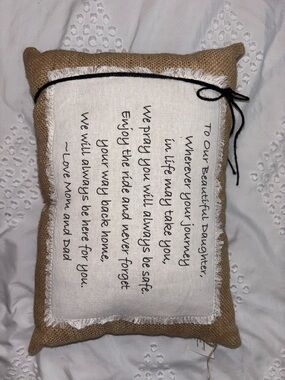 To Our Beautiful Daughter,
Wherever your journey
in life may take you,
We pray you will always be safe.
Enjoy the ride and never forget
your way back home,
We will always be here for you.
~Love Mom and Dad